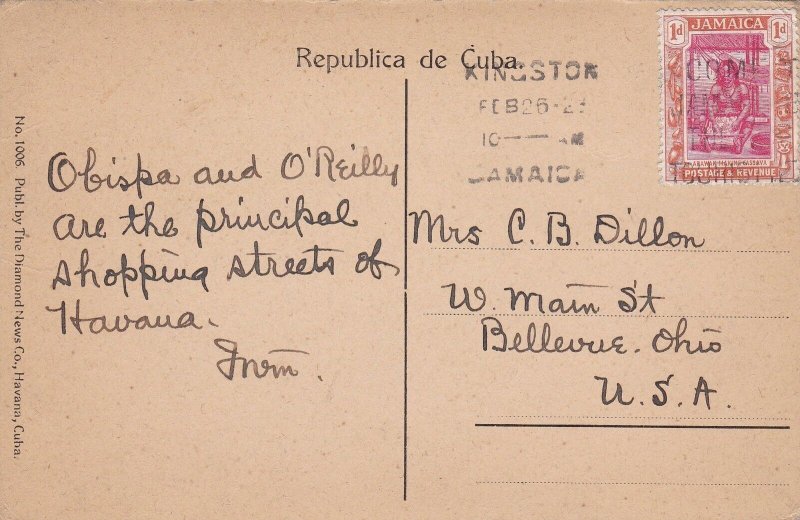 Republica de Cuba.
JAMAICA
1d 1d
POSTAGE & REVENUE
KINGSTON
FEB 26-23
10— AM
JAMAICA
COME
Obispa and O'Reilly
are the principal
shopping streets of
Havana.
Mrs C. B. Dillon
W. Main St
Bellevue. Ohio
U. S. A.
No. 1006 Publ. by The Diamond News Co., Havana, Cuba.